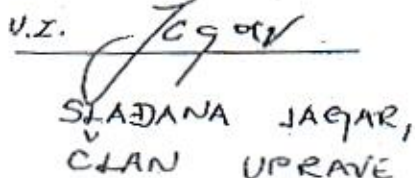 V.I. Jagar
SLAĐANA JAGAR,
ČLAN UPRAVE